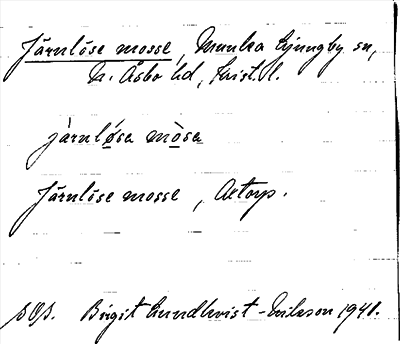 Järnlöse mosse, Munka Ljungby sn,
N. Åsbo hd, Krist. l.
jàrnlǿsa mòsa
Järnlöse mosse, Axtorp.
SOS. Birgit Lundkvist-Eriksson 1941.